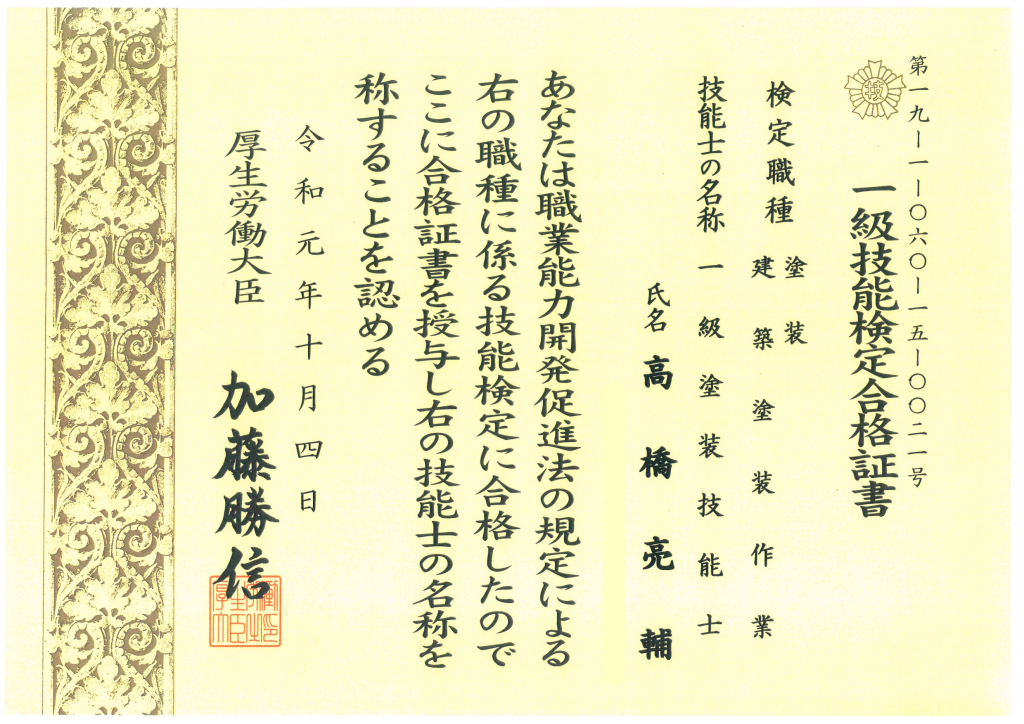 第一九ー一ー〇六〇ー一五ー〇〇二一号
技
一級技能検定合格証書
検定職種
塗装
建築塗装作業
技能士の名称 一級塗装技能士
氏名 高橋亮輔
あなたは職業能力開発促進法の規定による
右の職種に係る技能検定に合格したので
ここに合格証書を授与し右の技能士の名称を
称することを認める
令和元年十月四日
厚生労働大臣
加藤勝信